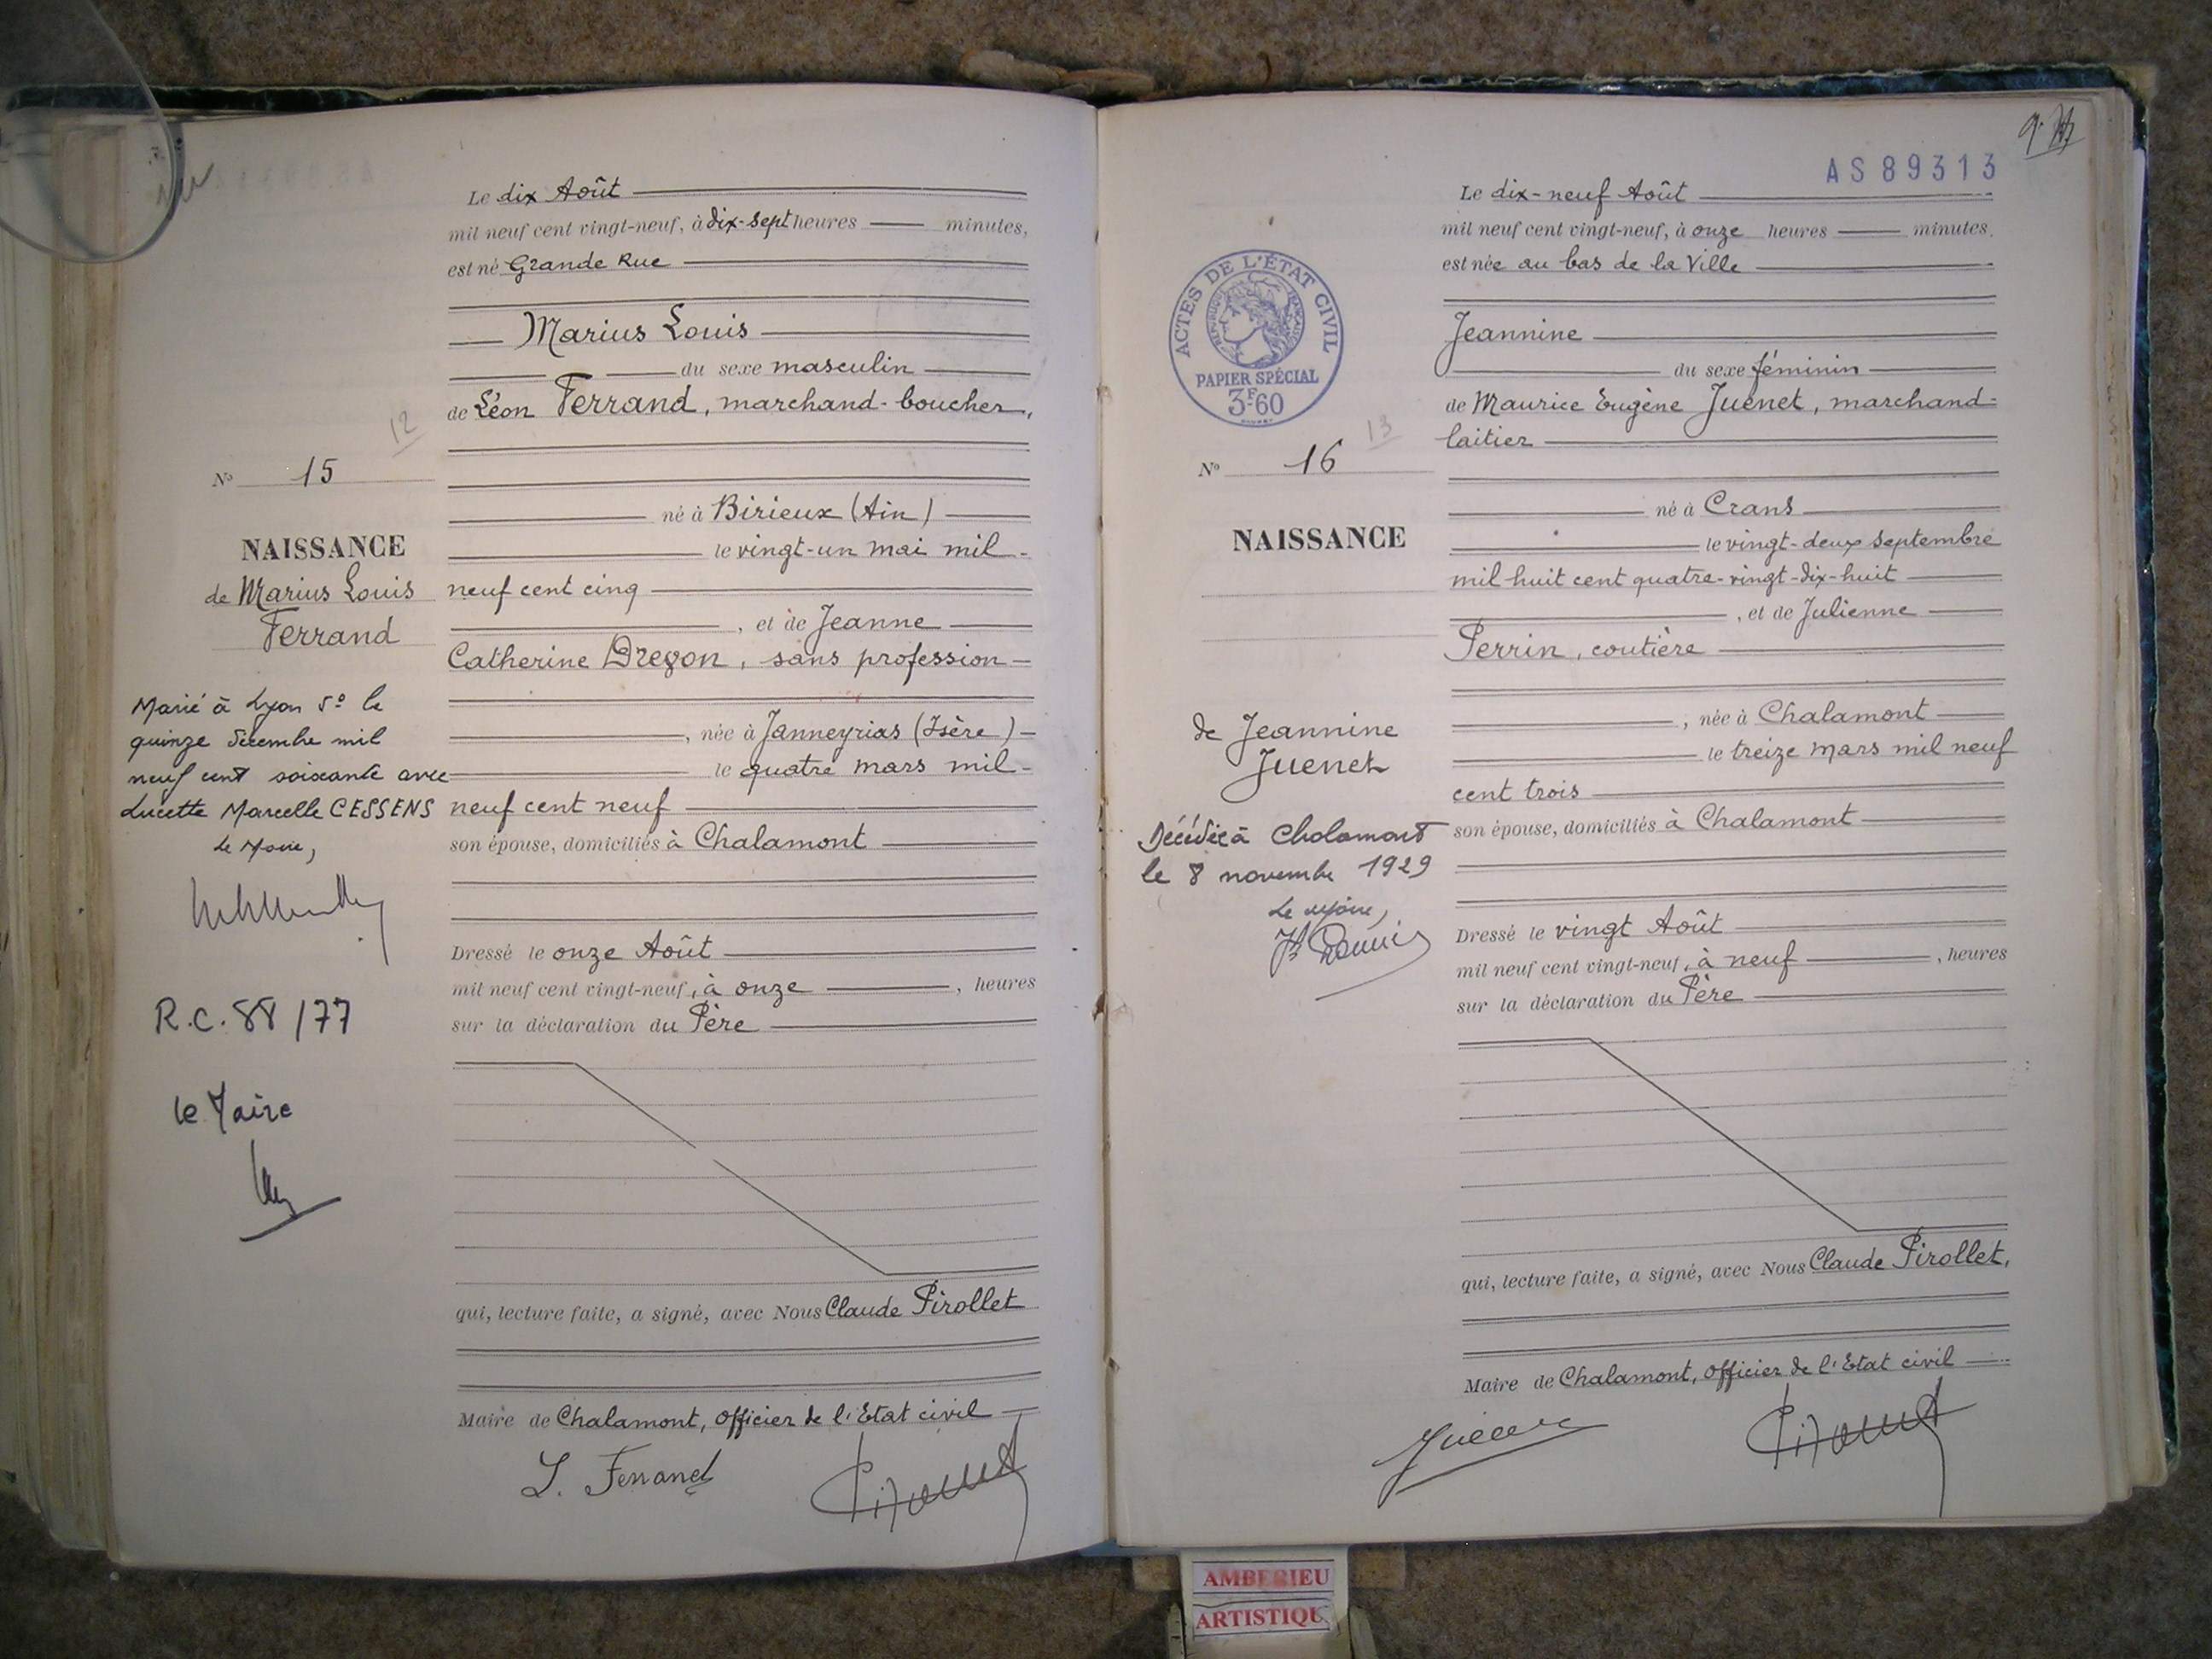 Le dix Août
mil neuf cent vingt-neuf, à dix-sept heures minutes,
est né Grande Rue
Marius Louis
du sexe masculin
de Léon Ferrand, marchand-boucher,
12
N° 15
né à Birieux (Ain)
NAISSANCE
le vingt-un mai mil
de Marius Louis
neuf cent cinq
Ferrand
, et de Jeanne
Catherine Dregon, sans profession
Marié à Lyon 5e le
quinze décembre mil
neuf cent soixante avec
Lucette Marcelle CESSENS
Le Maire,
, née à Janneyrias (Isère)
le quatre mars mil
neuf cent neuf
son épouse, domiciliés à Chalamont
Dressé le onze Août
mil neuf cent vingt-neuf, à onze , heures
sur la déclaration du Père
R.C. 88/77
le Maire
qui, lecture faite, a signé, avec Nous Claude Pirollet
Maire de Chalamont, officier de l'Etat civil
L. Ferrand
AS89313
Le dix-neuf Août
mil neuf cent vingt-neuf, à onze heures minutes.
est née au bas de la Ville
ACTES DE L'ÉTAT CIVIL
RÉPUBLIQUE FRANÇAISE
PAPIER SPÉCIAL
3F60
Jeannine
du sexe féminin
de Maurice Eugène Juenet, marchand-
laitier
13
N° 16
né à Crans
NAISSANCE
le vingt-deux septembre
mil huit cent quatre-vingt-dix-huit
, et de Julienne
Perrin, coutière
de Jeannine
Juenet
, née à Chalamont
le treize mars mil neuf
cent trois
son épouse, domiciliés à Chalamont
Décédée à Chalamont
le 8 novembre 1929
Le Maire,
Dressé le vingt Août
mil neuf cent vingt-neuf, à neuf , heures
sur la déclaration du Père
qui, lecture faite, a signé, avec Nous Claude Pirollet,
Maire de Chalamont, officier de l'Etat civil
Juenet
AMBERIEU
ARTISTIQU